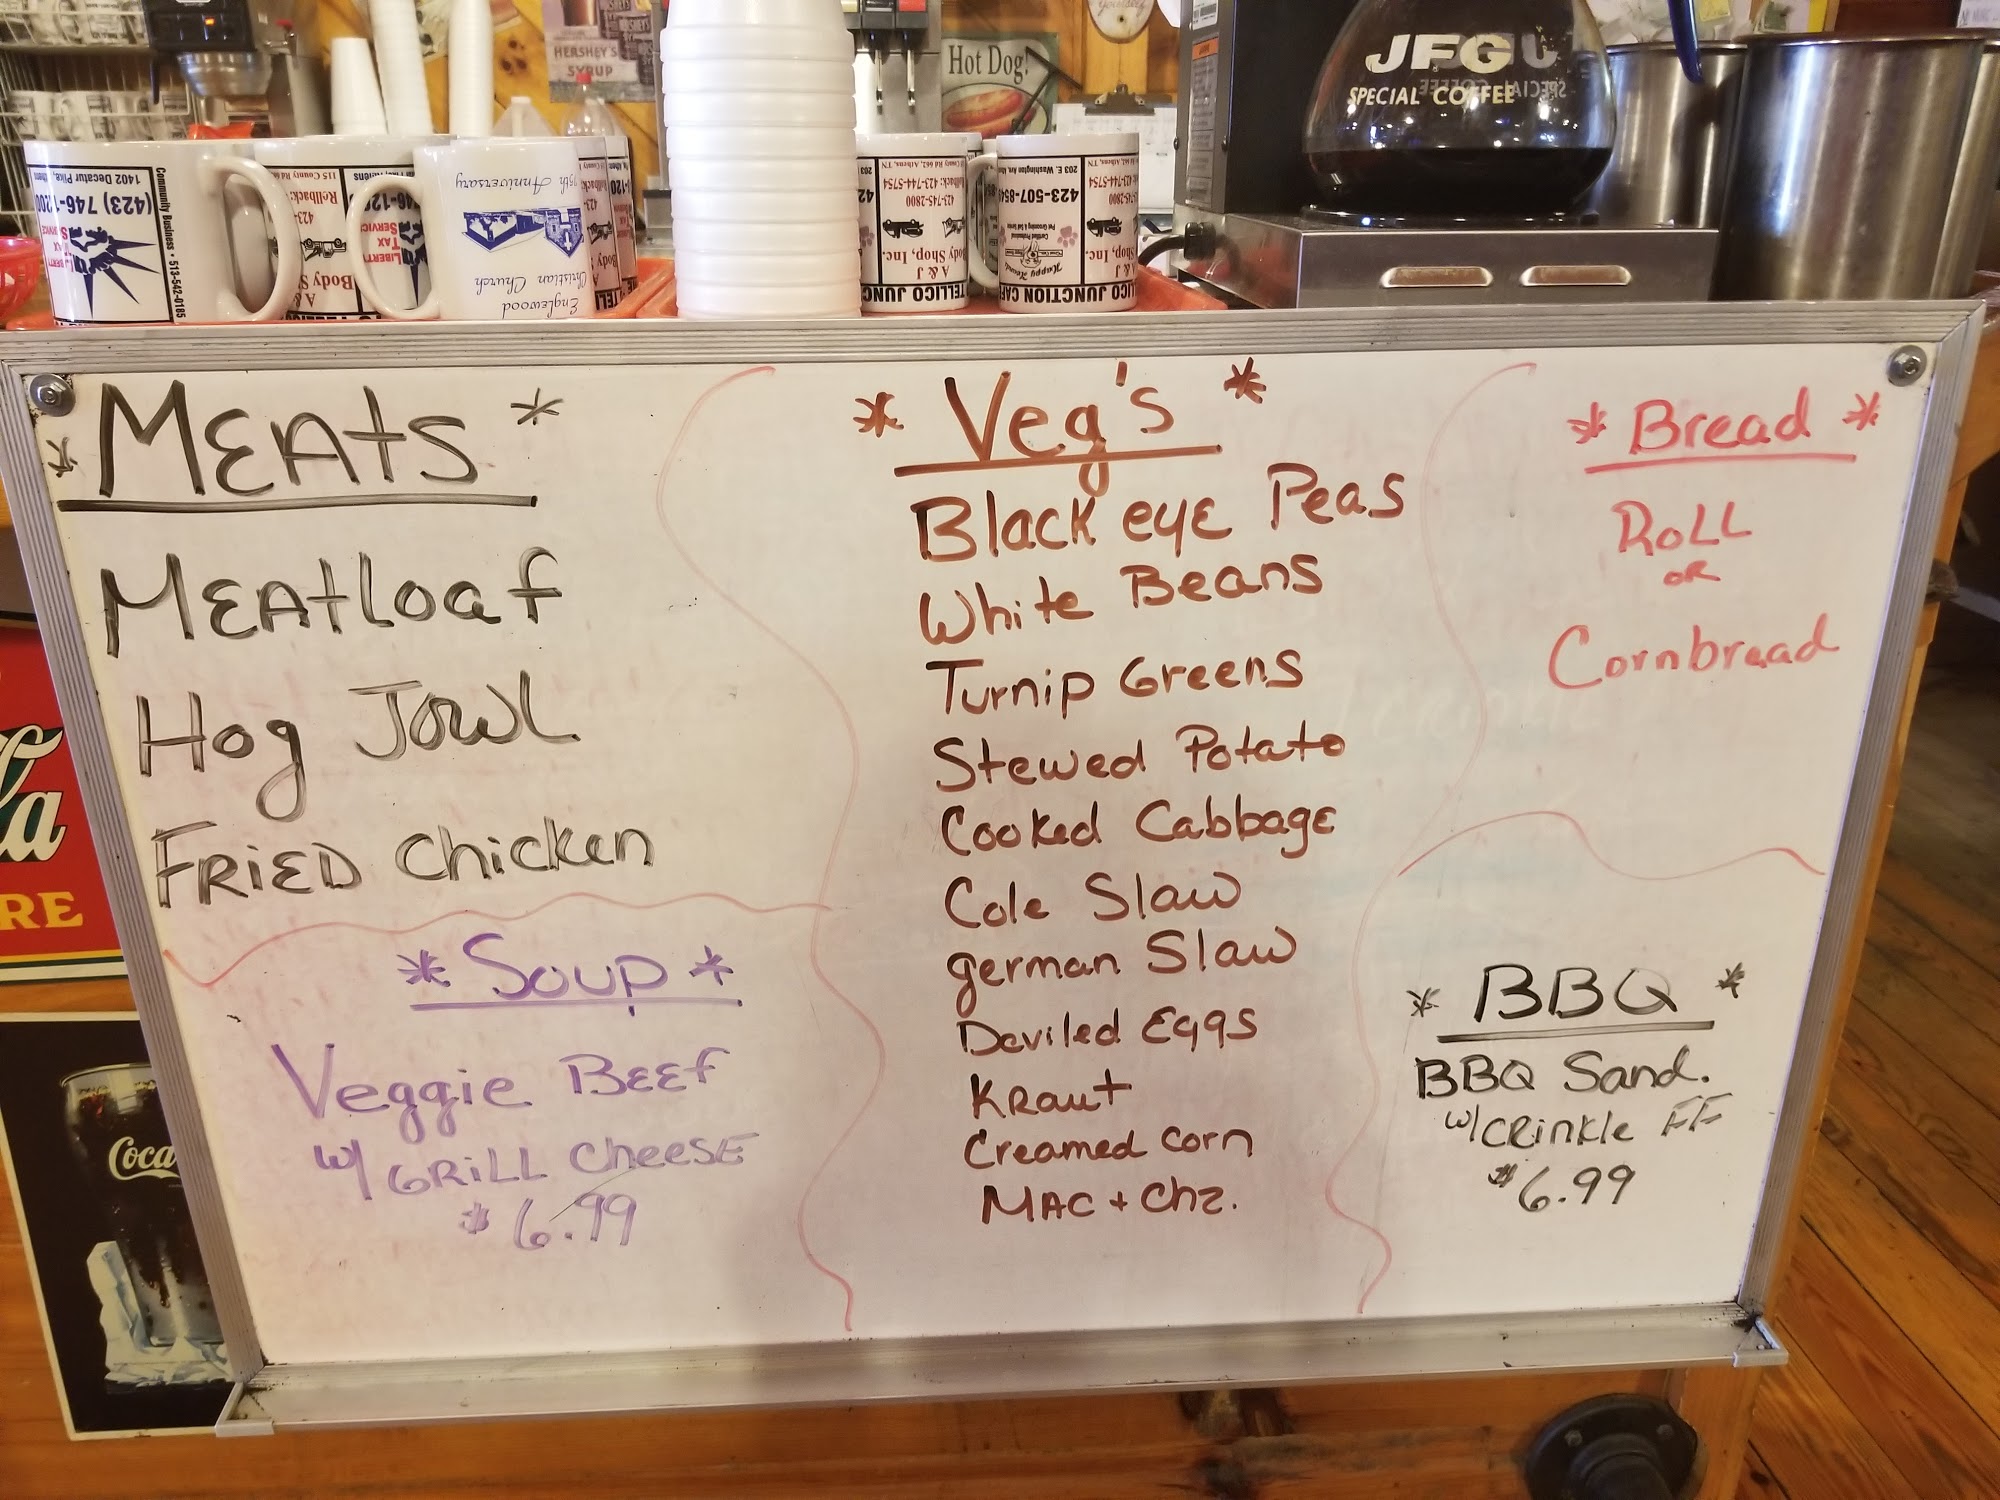 HERSHEY'S
SYRUP
Hot Dog!
JFG
SPECIAL COFFEE
1402 Decatur Pike, Athens
(423) 746-1200
LIBERTY
TAX
SERVICE
Community Business • 513-542-0185
Englewood
Christian Church
75th Anniversary
TELLICO JUNC
A & J
Body Shop, Inc.
423-745-2800
Rollback: 423-744-5754
County Rd 662, Athens, TN
TELLICO JUNCTION CAFE
Happy Hound
423-507-854
203 E. Washington Ave.
*MEAts*
MEAtloaf
Hog Jowl
FRiED Chicken
*Soup*
Veggie BEEf
w/ GRiLL CheeSE
$6.99
*Veg's*
Black eye Peas
White Beans
Turnip Greens
Stewed Potato
Cooked Cabbage
Cole Slaw
german Slaw
Deviled Eggs
KRaut
Creamed corn
MAC + Chz.
*Bread*
RoLL
oR
Cornbread
*BBQ*
BBQ Sand.
w/CRinkle FF
$6.99
la
RE
Coca